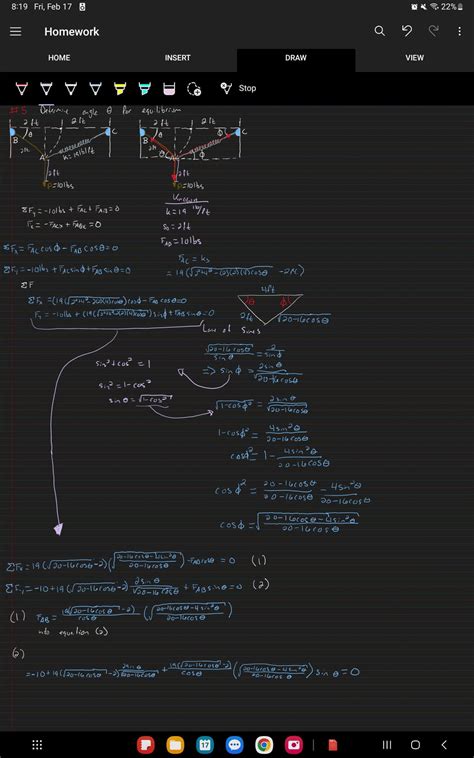 8:19 Fri, Feb 17 22%
Homework
HOME INSERT DRAW VIEW
Stop
#5 Determine angle θ for equilibrium
2 ft 2 ft 2 ft 2 ft
B θ C B θ Φ C
2ft A k=19 lb/ft θ A Φ
2ft 2ft
P=10lbs P=10lbs
Known
k=19 lb/ft
S₀=2ft
F_AD=10lbs
ΣF_y=-10lbs + F_AC + F_AB=0
F_x=-F_ACx + F_ABx=0
F_AC=ks
ΣF_x=F_AC cosΦ-F_AB cosθ=0
ΣF_y=-10lbs+F_AC sinΦ+F_AB sinθ=0
ΣF
4ft
θ Φ
2ft √20-16cosθ
Law of Sines
√20-16cosθ/sinθ = 2/sinΦ
=> sinΦ = 2sinθ/√20-16cosθ
sin²+cos²=1
sin²=1-cos²
sinθ=√1-cos²
√1-cosΦ² = 2sinθ/√20-16cosθ
1-cosΦ² = 4sin²θ/20-16cosθ
cosΦ² = 1 - 4sin²θ/20-16cosθ
cosΦ² = 20-16cosθ/20-16cosθ - 4sin²θ/20-16cosθ
cosΦ = √20-16cosθ-4sin²θ/20-16cosθ
ΣF_x=19(√20-16cosθ-2)(√20-16cosθ-4sin²θ/20-16cosθ)-F_AB cosθ=0 (1)
ΣF_y=-10+19(√20-16cosθ-2)2sinθ/√20-16cosθ+F_AB sinθ=0 (2)
(1) F_AB=19(√20-16cosθ-2)/cosθ (√20-16cosθ-4sin²θ/20-16cosθ)
into equation (2)
(2)
=-10+19(√20-16cosθ-2)2sinθ/√20-16cosθ+19(√20-16cosθ-2)/cosθ(√20-16cosθ-4sin²θ/20-16cosθ)sinθ=0
17